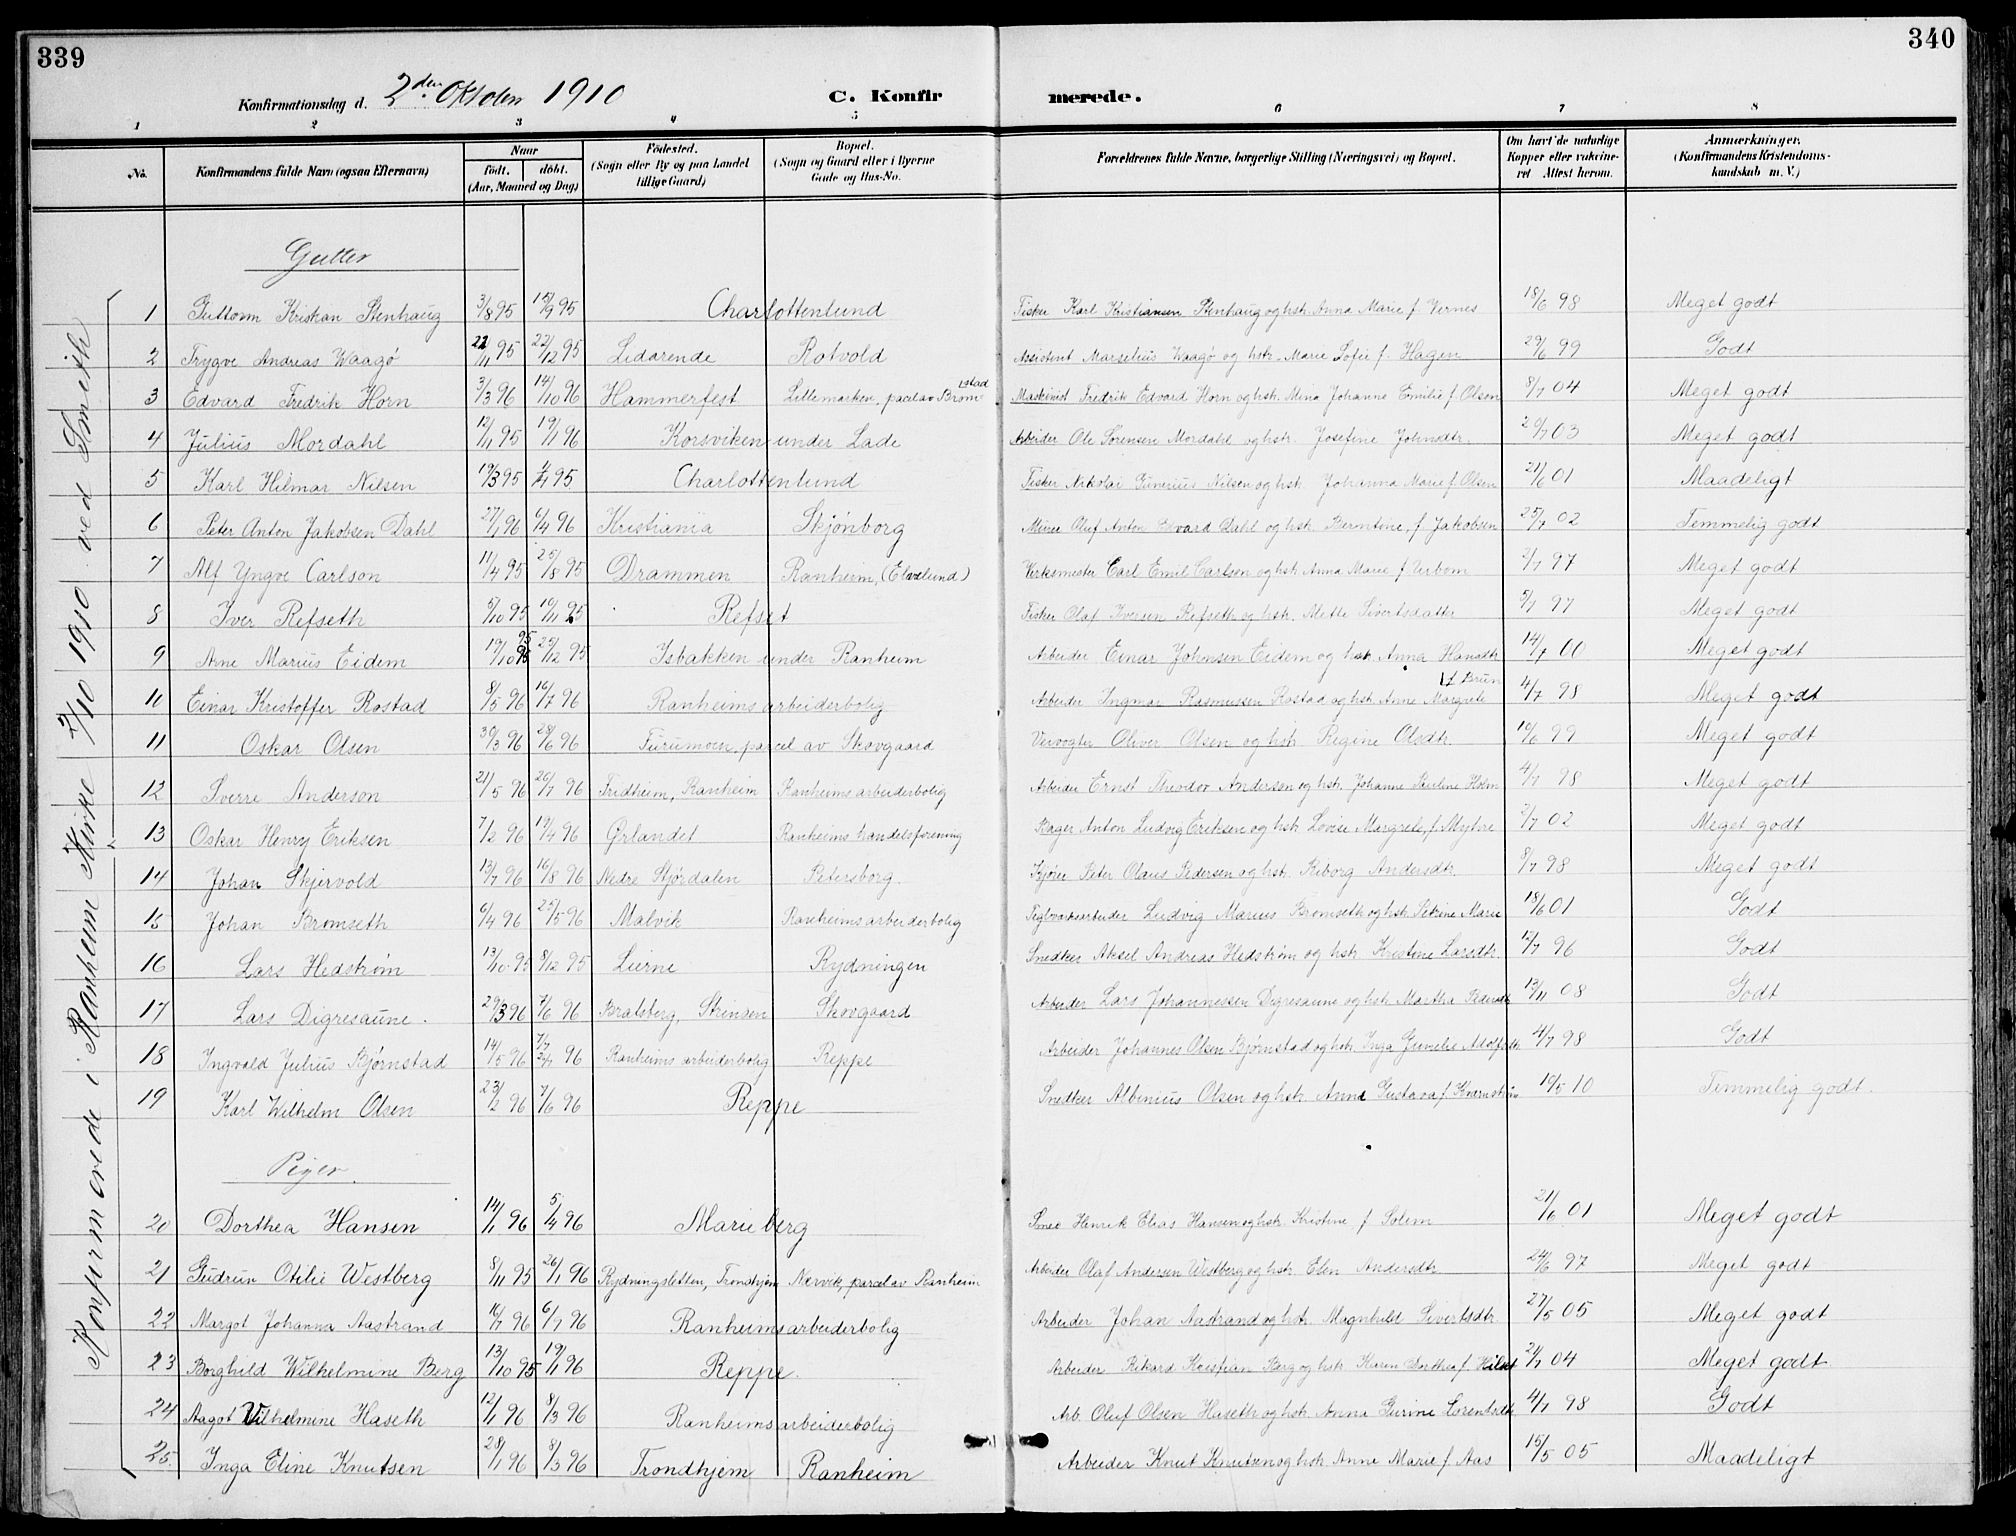 339
340
Konfirmationsdag d. 2den Oktober 1910
C. Konfirmerede.
1 2 3 4 5 6 7 8
No. | Konfirmandens fulde Navn (ogsaa Efternavn) | Naar født. døbt. (Aar, Maaned og Dag) | Fødested. (Sogn eller By og paa Landet tillige Gaard) | Bopæl. (Sogn og Gaard eller i Byerne Gade og Hus-No. | Forældrenes fulde Navne, borgerlige Stilling (Næringsvei) og Bopæl. | Om havt de naturlige Kopper eller vakcineret Attest herom. | Anmærkninger. (Konfirmandens Kristendomskundskab m. V.)
Konfirmerede i Ranheim Kirke 2/10 1910 ved Smith
Gutter
1 Guttorm Kristian Stenhaug 3/8 95 15/9 95 Charlottenlund Fisker Karl Kristiansen Stenhaug og hstr. Anna Marie f. Vernes 18/6 98 Meget godt
2 Trygve Andreas Waagø 22/11 95 22/12 95 Lidarende Rotvold Assistent Marselius Waagø og hstr. Marie Sofie f. Hagen 29/6 99 Godt
3 Edvard Fredrik Horn 3/3 96 14/10 96 Hammerfest Lillemarken, parcel av Bromstad Maskinist Fredrik Edvard Horn og hstr. Mina Johanne Emilie f. Olsen 8/7 04 Meget godt
4 Julius Mordahl 12/11 95 19/1 96 Korsviken under Lade Arbeider Ole Sørensen Mordahl og hstr. Josefine Johnsdtr. 20/7 03 Meget godt
5 Karl Hilmar Nilsen 19/3 95 4/7 95 Charlottenlund Fisker Nikolai Gunerius Nilsen og hstr. Johanna Marie f. Olsen 21/6 01 Maadeligt
6 Peter Anton Jakobsen Dahl 27/1 96 6/4 96 Kristiania Skjønborg Murer Oluf Anton Edvard Dahl og hstr. Berntine f. Jakobsen 25/7 02 Temmelig godt
7 Alf Yngve Carlson 11/4 95 25/8 95 Drammen Ranheim, (Elvelund) Verksmester Carl Emil Carlson og hstr. Anna Marie f. Urbom 2/7 97 Meget godt
8 Iver Refseth 5/10 95 10/11 95 Refset Fisker Olaf Iversen Refseth og hstr. Mette Sivertsdatter 5/7 97 Meget godt
9 Arne Marius Eidem 19/10 95 95 25/12 95 Isbakken under Ranheim Arbeider Einar Johnsen Eidem og hstr. Anna Hansdtr 14/7 00 Meget godt
10 Einar Kristoffer Rostad 8/5 96 16/7 96 Ranheims arbeiderbolig Arbeider Ingmar Rasmussen Rostad og hstr. Anne Margrete f. Brun 4/7 98 Meget godt
11 Oskar Olsen 30/3 96 28/6 96 Furumoen, parcel av Skovgaard Vervogter Oliver Olsen og hstr. Regine Olsdtr. 10/6 99 Meget godt
12 Sverre Anderson 21/5 96 26/7 96 Fridheim, Ranheim Ranheims arbeiderbolig Arbeider Ernst Theodor Anderson og hstr. Johanne Pauline Holm 4/7 98 Meget godt
13 Oskar Henry Eriksen 7/2 96 19/4 96 Ørlandet Ranheims handelsforening Bager Anton Ludvig Eriksen og hstr. Lovise Margrete, f. Myhre 2/7 02 Meget godt
14 Johan Skjervold 13/7 96 16/8 96 Nedre Stjørdalen Petersborg Kjører Peter Olaus Pedersen og hstr. Riborg Andersdtr. 8/7 98 Meget godt
15 Johan Bromseth 6/4 96 25/5 96 Malvik Ranheims arbeiderbolig Teglverksarbeider Ludvig Marius Bromseth og hstr. Petrine Marie 18/6 01 Godt
16 Lars Hedstrøm 13/10 95 8/12 95 Lierne Rydningen Snedker Aksel Andreas Hedstrøm og hstr. Kristine Larsdtr. 15/7 96 Godt
17 Lars Digresaune. 29/3 96 7/6 96 Bratsberg, Strinden Skovgaard Arbeider Lars Johannessen Digresaune og hstr. Martha Pedersdtr 13/11 08 Godt
18 Ingvald Julius Bjørnstad 14/5 96 96 Ranheims arbeiderbolig Reppe Arbeider Johannes Olsen Bjørnstad og hstr. Inga Gunelie Adolfsdtr 4/7 98 Godt
19 Karl Wilhelm Olsen 23/2 96 7/6 96 Reppe Snedker Albinius Olsen og hstr. Anna Gustava f. Kvarnstrøm 19/5 10 Temmelig godt.
Piger.
20 Dorthea Hansen 14/1 96 5/4 96 Marieberg Smed Henrik Elias Hansen og hstr. Kristine f. Solem 21/6 01 Meget godt
21 Gudrun Otilie Westberg 8/11 95 26/1 96 Rydningsletten, Trondhjem Nervik, parcel av Ranheim Arbeider Olaf Andersen Westberg og hstr. Elen Andersdtr. 24/6 97 Meget godt
22 Margot Johanna Aastrand 16/7 96 6/7 96 Ranheims arbeiderbolig Arbeider Johan Aastrand og hstr. Magnhild Sivertsdtr. 27/5 05 Meget godt
23 Borghild Wilhelmine Berg 13/10 95 19/1 96 Reppe. Arbeider Rikard Kristian Berg og hstr. Karen Dorthea f. Hildet 21/7 04 Meget godt
24 Aagot Vilhelmine Haseth 12/1 96 8/3 96 Ranheims arbeiderbolig Arb. Oluf Olsen Haseth og hstr. Anna Gurine Lorentsdtr 4/7 98 Godt
25. Inga Eline Knutsen 28/1 96 8/3 96 Trondhjem Ranheim Arbeider Knut Knutsen og hstr. Anne Marie f. Aas 15/5 05 Maadeligt